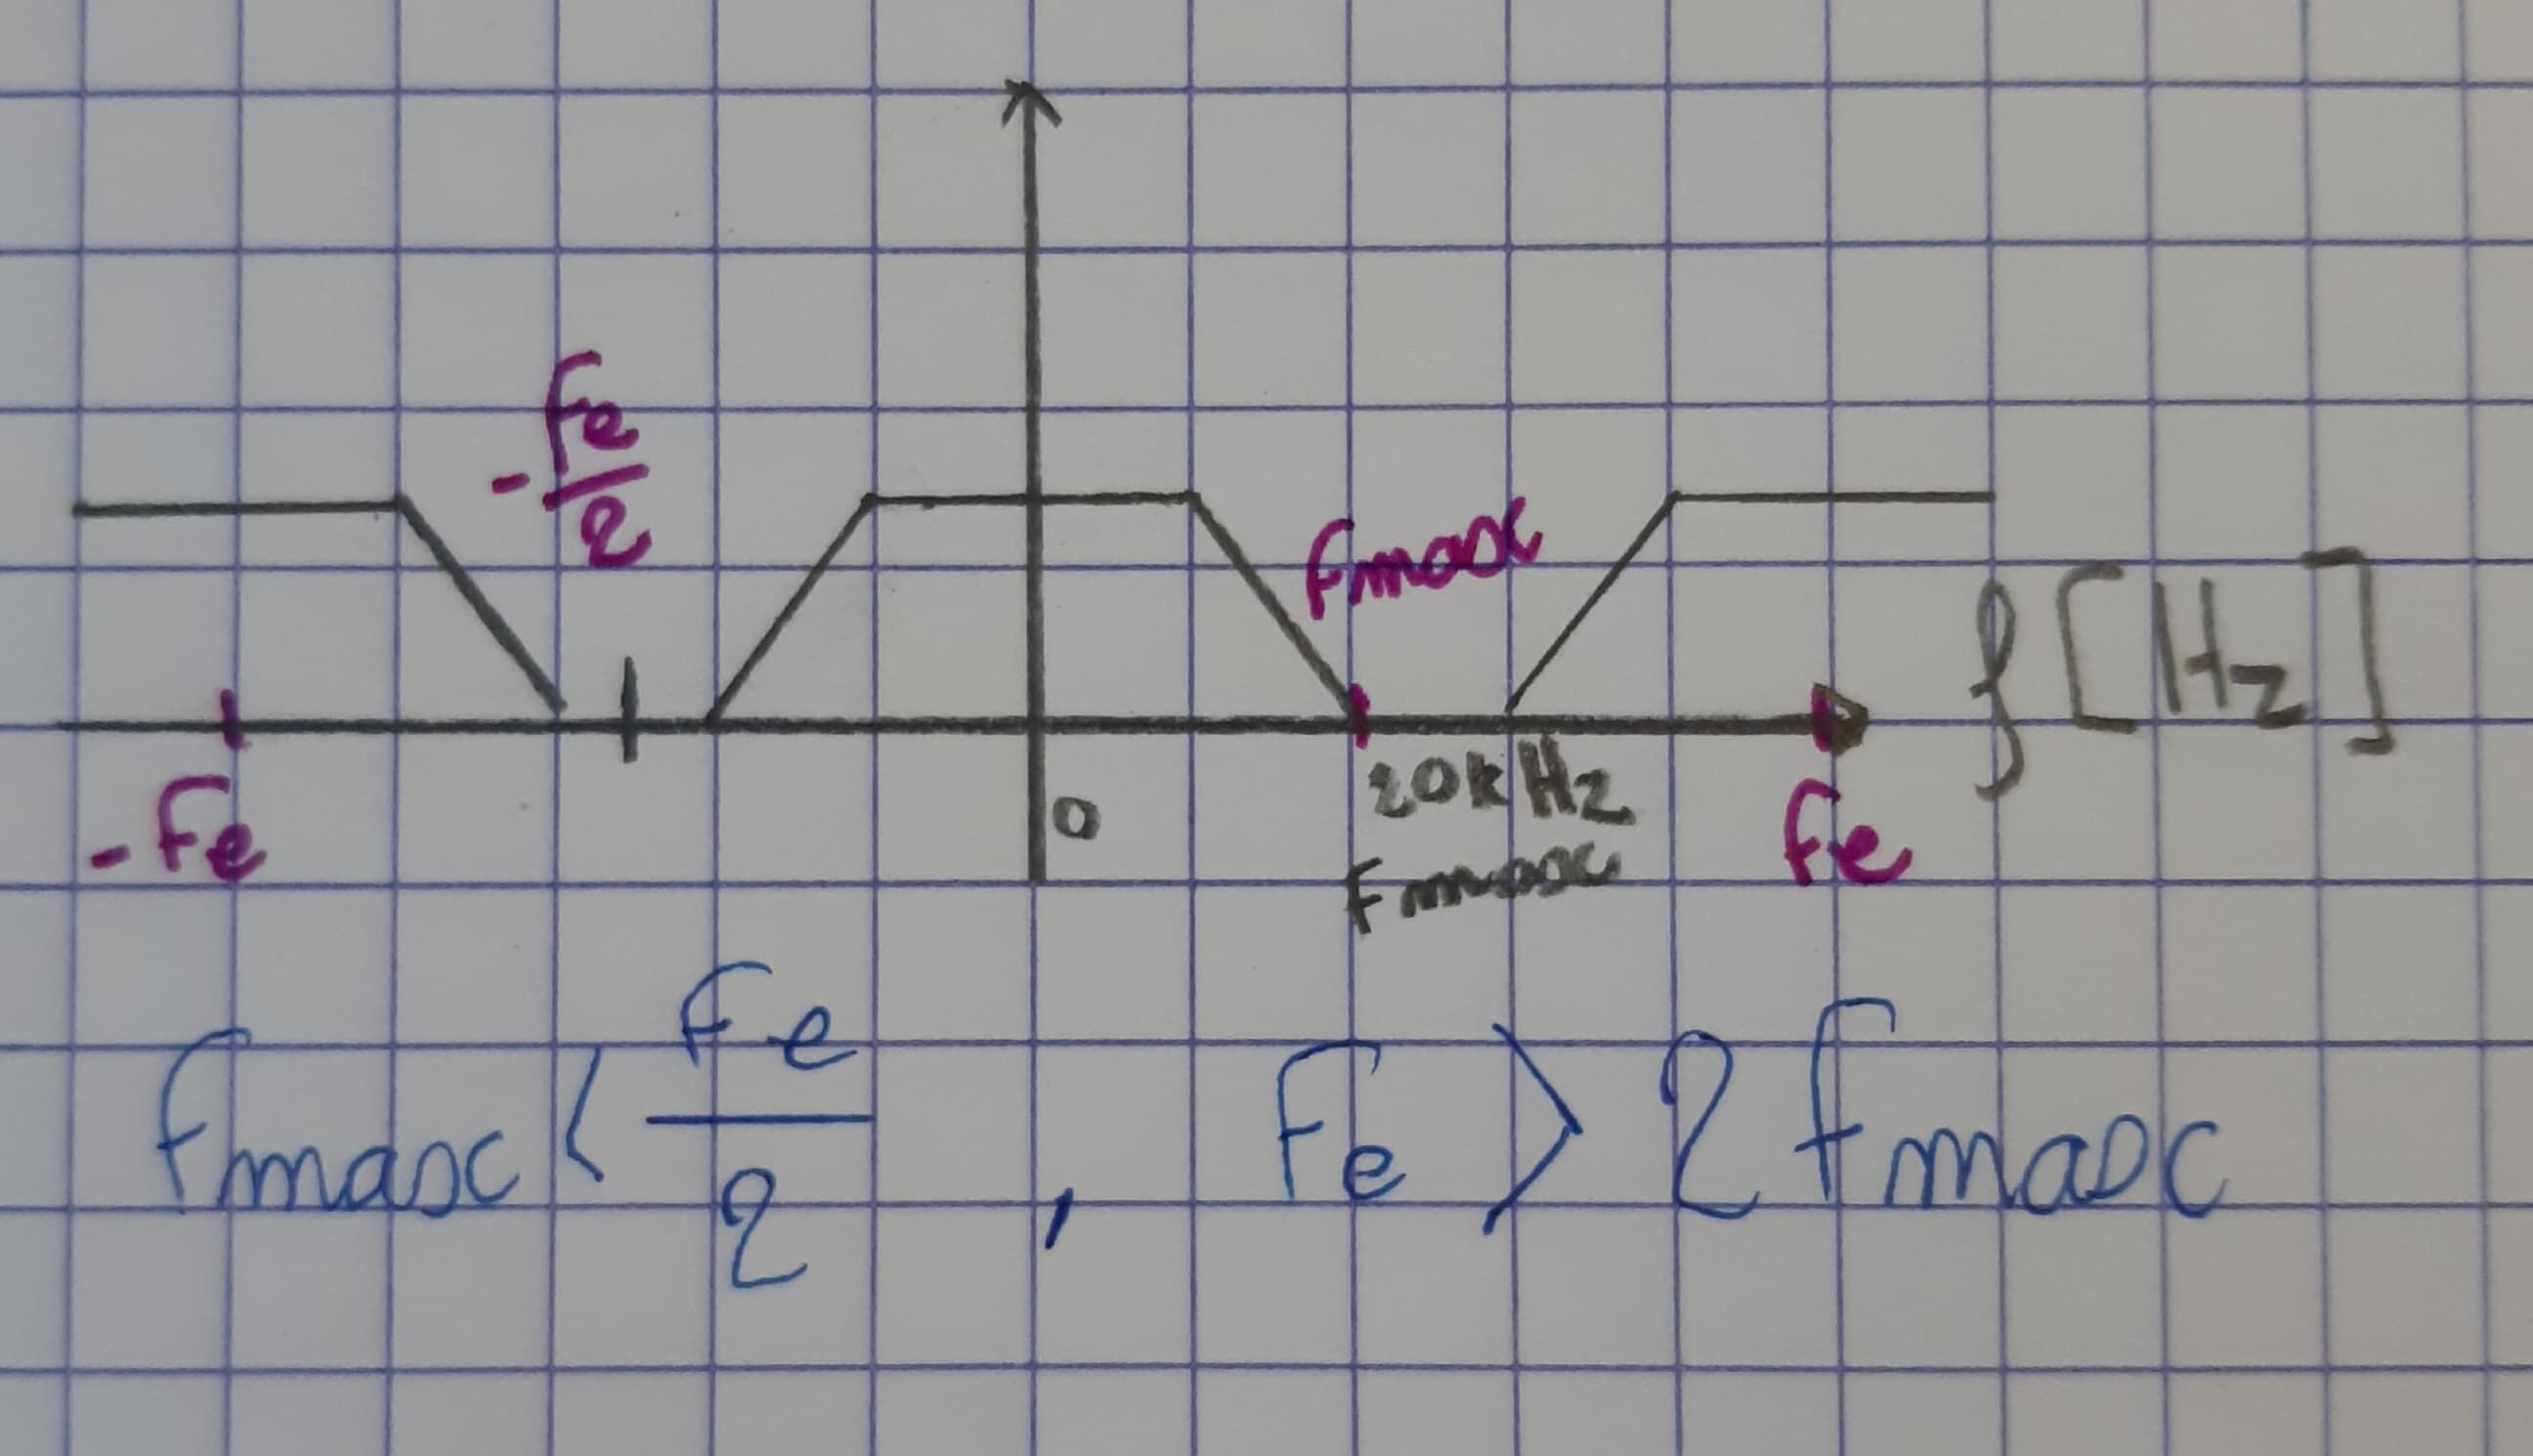 - Fe/2
Fmax
f [Hz]
- Fe
0
20kHz
Fmax
Fe
Fmax < Fe/2 , Fe > 2 Fmax